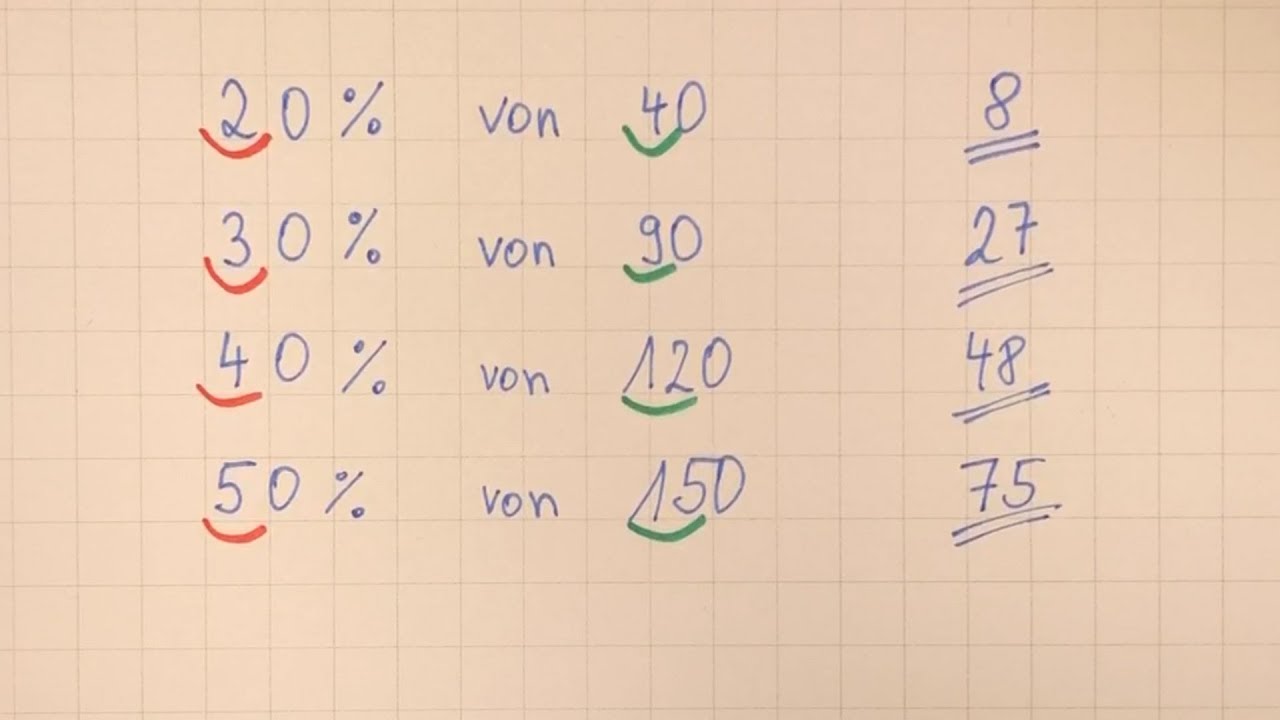 20 % von 40 8
30 % von 90 27
40 % von 120 48
50 % von 150 75